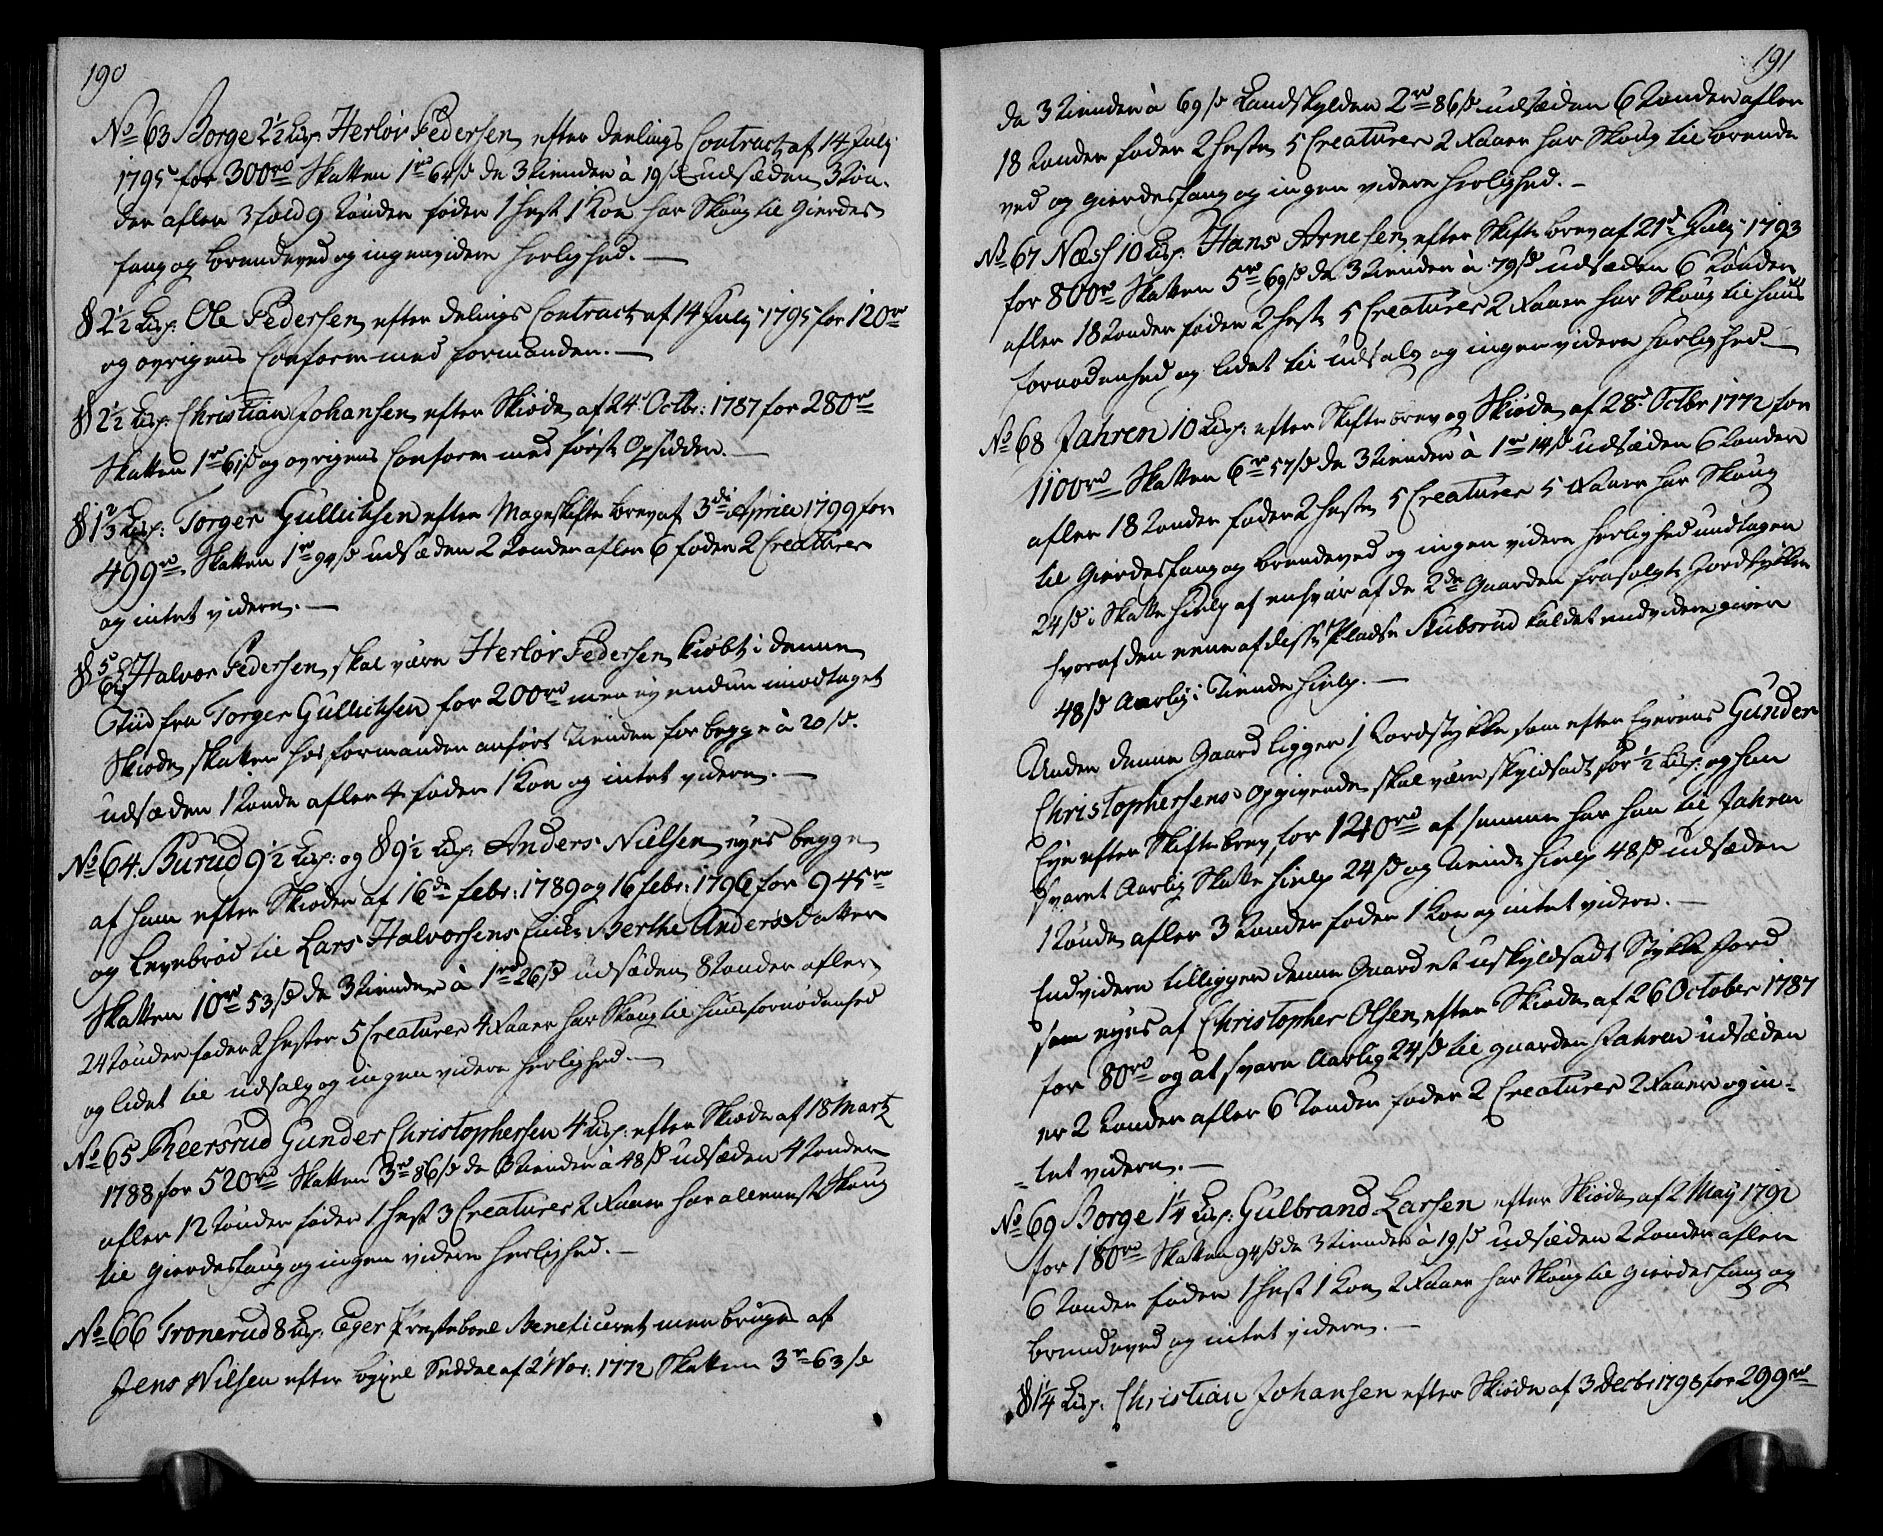 190
No 63 Borge 2½ Lisp: Herlör Pedersen efter deelings Contract af 14 July
1795 for 300rd Skatten 1rd 64 s de 3 tiender à 19 s udsæden 3 tön-
der afler 3 fold 9 tönder föder 1 hest 1 Koe har Skoug til gierdes
fang og brendeved og ingen videre herlighed. —
§ 2½ Lisp: Ole Pedersen efter delings Contract af 14 July 1795 for 120rd
og övrigens Conform med formanden. —
§ 2½ Lisp: Christian Johansen efter Skiöde af 24 Octbr: 1787 for 280rd
Skatten 1rd 61 s og övrigens Conform med förste Opsidder. —
§ 1⅔ Lisp: Torger Gullichsen efter Mageskifte brev af 3di April 1799 for
499rd Skatten 1rd 94 s udsæden 2 tönder afler 6 föder 2 Creaturer
og intet videre. —
§ 5/6 Halvor Pedersen skal være Herlör Pedersen kiöbt i denne
Tiid fra Torger Gullichsen for 200rd men ey endnu imodtaget
Skiöde, skatten hos formanden anfört Tienden for begge à 20 s.
udsæden 1 tönde afler 4 föder 1 Koe og intet videre. —
No 64 Burud 9½ Lisp: og § 9½ Lisp: Anders Nielsen eyes begge
af ham efter Skiöder af 16de febr: 1789 og 16 febr: 1796 for 945rd
og Levebröd til Lars Halvorsens Enke Berthe Anders Datter
Skatten 10rd 53 s de 3 tiender à 1rd 26 s udsæden 8 tönder afler
24 tönder föder 2 hester 5 Creaturer 4 Faaer har Skoug til huusfornödenhed
og lidet til udsalg og ingen videre herlighed. —
No 65 Keersrud Gunder Christophersen 4 Lisp: efter Skiöde af 18 Martz
1788 for 520rd Skatten 3rd 86 s de 3 tiender à 48 s udsæden 4 tönder
afler 12 tönder föder 1 hest 3 Creaturer 2 Faaer har alleneste Skoug
til gierdesfang og ingen videre herlighed. —
No 66 Tronerud 8 Lisp: Eger Prestebord Beneficeret men bruges af
Jens Nilsen efter Bÿxel Seddel af 2 Nov: 1772 Skatten 3rd 63 s
191
de 3 tiender à 69 s Landskylden 2rd 86 s udsæden 6 tönder afler
18 tönder föder 2 heste 5 Creaturer 2 Faaer har Skoug til brende
ved og gierdesfang og ingen videre herlighed. —
No 67 Næss 10 Lisp: Hans Arnesen efter Skifte brev af 21d July 1793
for 800rd Skatten 5rd 69 s de 3 tiender à 79 s udsæden 6 tönder
afler 18 tönder föder 2 heste 5 Creaturer 2 Faaer har Skoug til huus
fornödenhed og lidet til udsalg og ingen videre herlighed —
No 68 Jahren 10 Lisp: efter Skifte brev og Skiöde af 28d Octbr 1772 for
1100rd Skatten 6rd 57 s de 3 tiender à 1rd 14 s udsæden 6 tönder
afler 18 tönder föder 2 heste 5 Creaturer 5 Faaer har Skoug
til gierdesfang og brendeved og ingen videre herlighed undtagen
24 s i Skatte hielp af enhvær af de 2de Gaarden frasolgte Jordstykker
hvoraf den eene af disse Pladse Stubsrud kaldet endvidere giver
48 s Aarlig i Tiende hielp. —
Under denne Gaard ligger 1 Jordstykke som efter Eyerens Gunder
Christophersens Opgivende skal være skyldsadt for ½ Lisp: og han
Eye efter Skifte brev for 140rd af samme har han til Jahren
svaret Aarlig Skatte hielp 24 s og Tiende hielp 48 s udsæden
1 tönde afler 3 tönder föder 1 Koe og intet videre. —
Endvidere tilligger denne Gaard et uskyldsadt Stykke Jord
som eyes af Christopher Olsen efter Skiöde af 26 October 1787
for 80rd og at svare Aarlig 24 s til gaarden Jahren udsæden
er 2 tönder afler 6 tönder föder 2 Creaturer 2 Faaer og in-
-tet videre. —
No 69 Borge 1¼ Lisp: Gulbrand Larsen efter Skiöde af 2 May 1792
for 180rd Skatten 94 s de 3 tiender à 19 s udsæden 2 tönder afler
6 tönder föder 1 hest 1 Koe 2 Faaer har Skoug til gierdesfang og
brendeved og intet videre. —
§ 1¼ Lisp: Christian Johansen efter Skiöde af 3 Decbr 1798 for 299rd